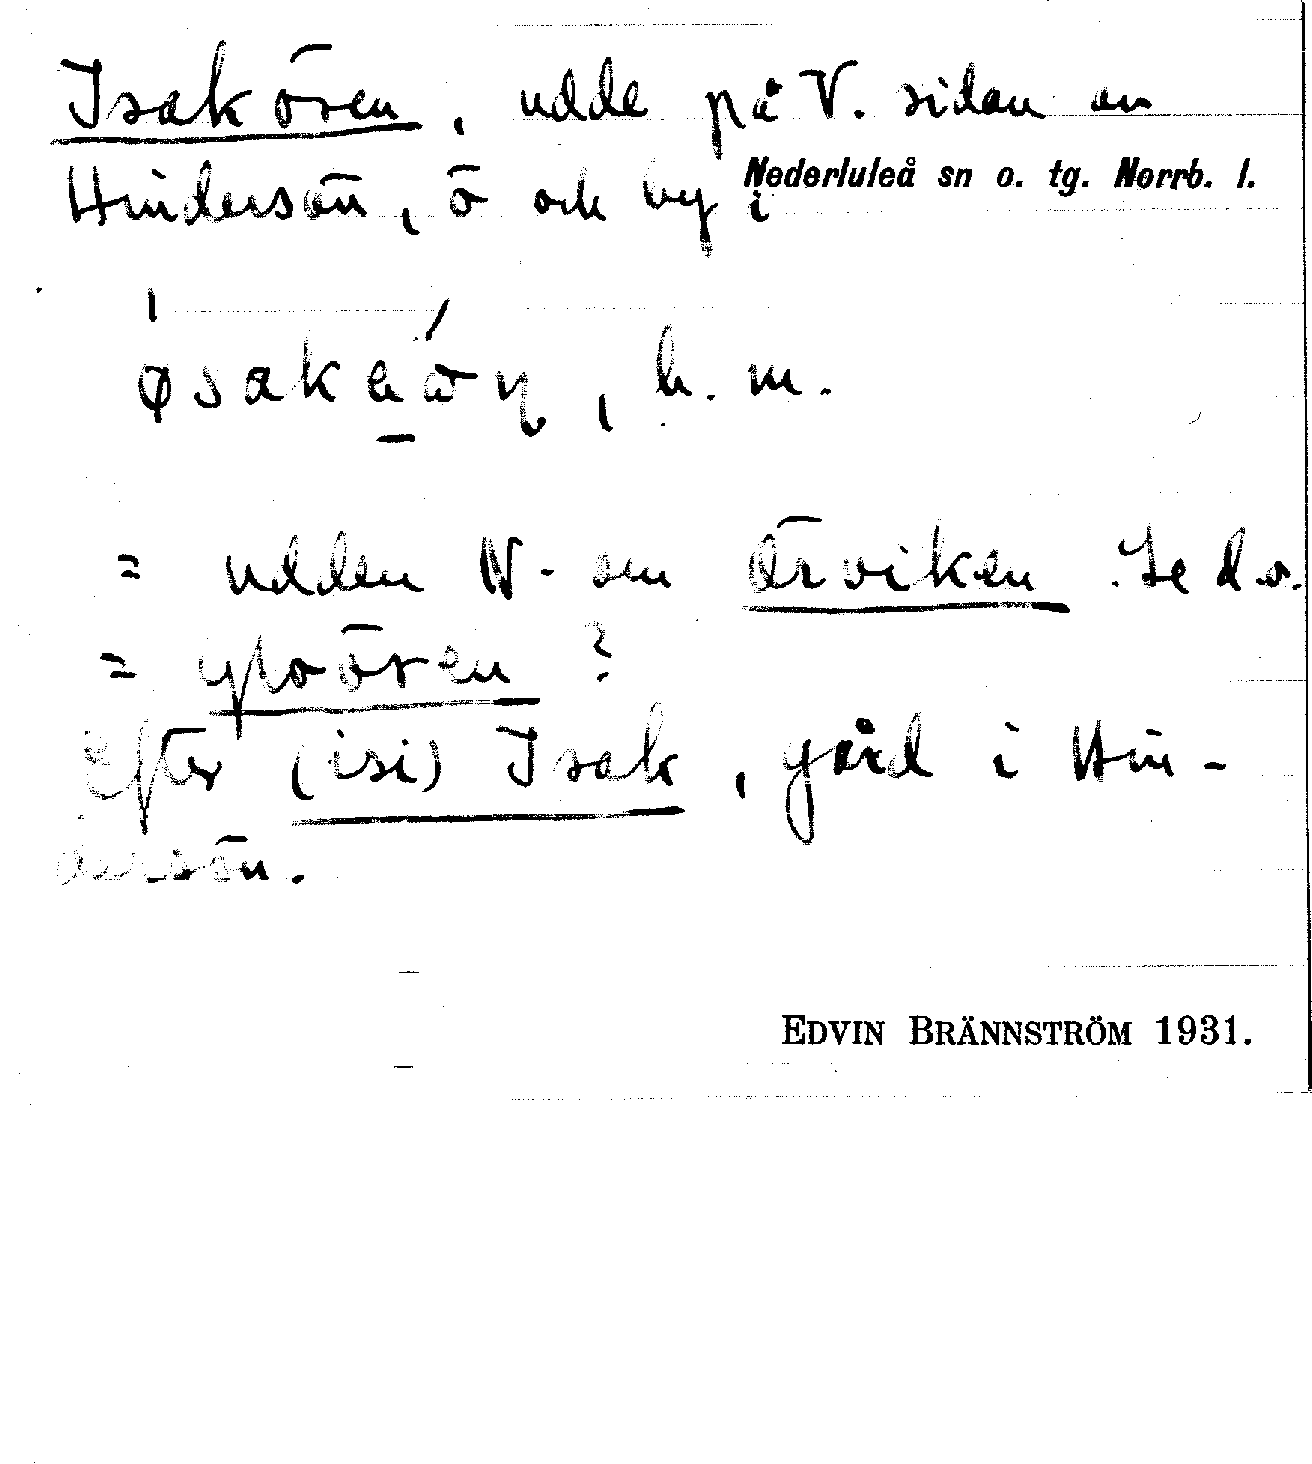 Isakören, udde på V. sidan av
Hindersön, ö och by i Nederluleå sn o. tg. Norrb. l.
h. m.
= udden N. om Örviken. Se d. o.
= Yttören ?
Efter (isi) Isak, gård i Hin-
dersön.
EDVIN BRÄNNSTRÖM 1931.